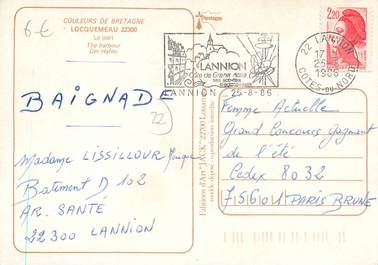 6€
COULEURS DE BRETAGNE
LOCQUEMEAU 22300
Le port
The harbour
Der Hafen
Bretagne
BAIGNADE
22
Madame LISSILLOUR Monique
Bâtiment D 102
AR. SANTÉ
22300 LANNION
Editions d'Art "JACK" 22700 Louannec
modèle déposé - reproduction interdite
LANNION
Côte de Granit Rose
LANNION 25-8-86
22 LANNION
17H
25-8
1986
COTES-DU-NORD
2,20
Femme Actuelle
Grand Concours Gagnant
de l'été
Cedex 8032
75601 PARIS BRUNE